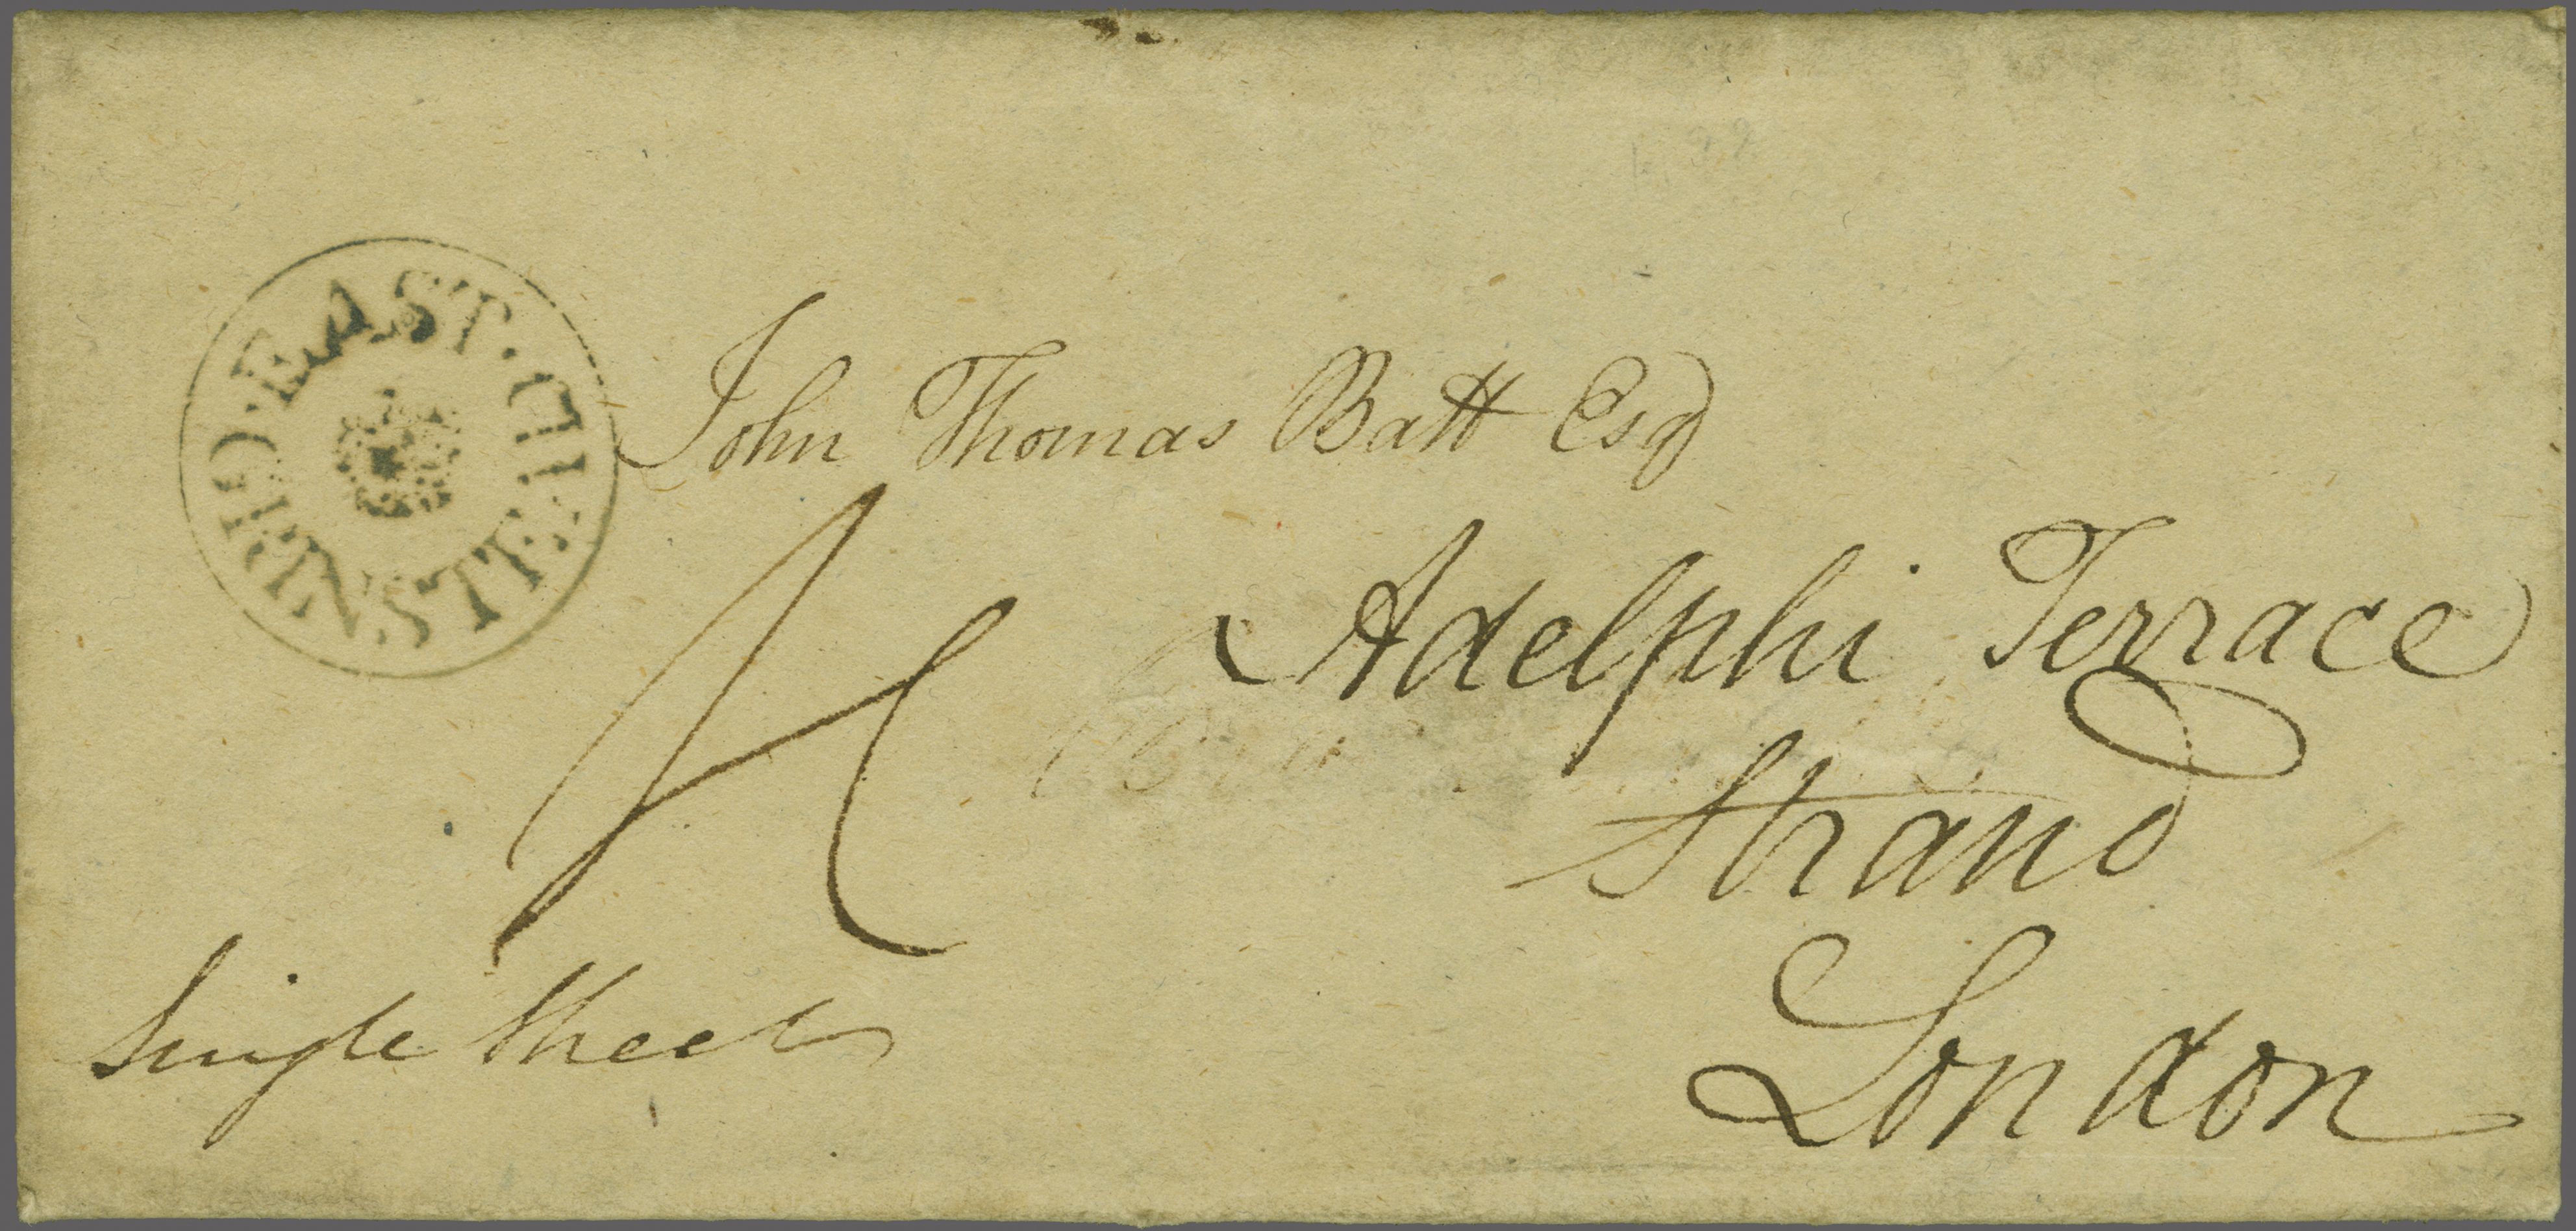 EAST·GRINSTED·
John Thomas Batt Esq
Adelphi Terrace
Strand
London
Single Sheet